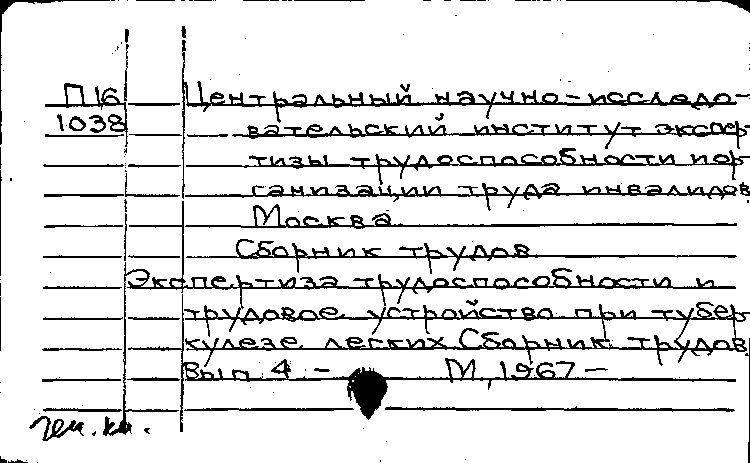 П16 Центральный научно-исследо-
1038 вательский институт экспер-
тизы трудоспособности и ор-
ганизации труда инвалидов
Москва.
Сборник трудов.
Экспертиза трудоспособности и
трудовое устройство при тубер-
кулезе легких. Сборник трудов
Вып 4 - М., 1967 -